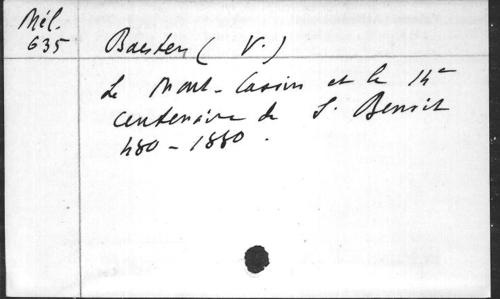 Mél.
635
Baesten ( V. )
Le Mont-Cassin et le 14e
centenaire de S. Benoit
480 - 1880.